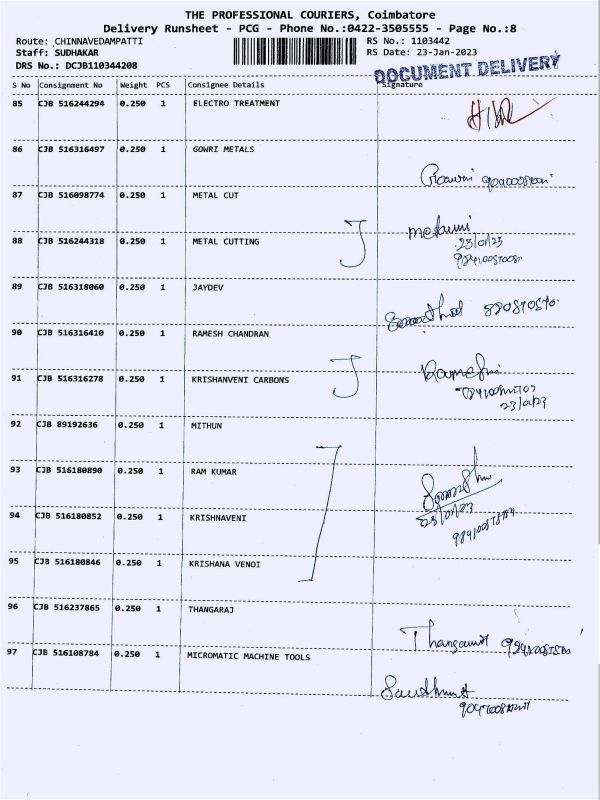 THE PROFESSIONAL COURIERS, Coimbatore
Delivery Runsheet - PCG - Phone No.:0422-3505555 - Page No.:8
Route: CHINNAVEDAMPATTI RS No.: 1103442
Staff: SUDHAKAR RS Date: 23-Jan-2023
DRS No.: DCJB110344208
DOCUMENT DELIVERY
S No Consignment No Weight PCS Consignee Details Signature
85 CJB 516244294 0.250 1 ELECTRO TREATMENT
86 CJB 516316497 0.250 1 GOWRI METALS
87 CJB 516098774 0.250 1 METAL CUT
88 CJB 516244318 0.250 1 METAL CUTTING
23/01/23
89 CJB 516318060 0.250 1 JAYDEV
90 CJB 516316410 0.250 1 RAMESH CHANDRAN
91 CJB 516316278 0.250 1 KRISHANVENI CARBONS
23/01/23
92 CJB 89192636 0.250 1 MITHUN
93 CJB 516180890 0.250 1 RAM KUMAR
94 CJB 516180852 0.250 1 KRISHNAVENI
95 CJB 516180846 0.250 1 KRISHANA VENOI
96 CJB 516237865 0.250 1 THANGARAJ
97 CJB 516108784 0.250 1 MICROMATIC MACHINE TOOLS